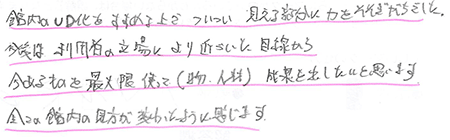 館内のUD化をすすめる上で ついつい 見える部分に力をそそぎがちでした。
今後は 利用者の立場に より近づいた 目線から
今あるものを最大限 使って(物・人材) 成果を出したいと思います
全ての館内の見方が変わったように感じます